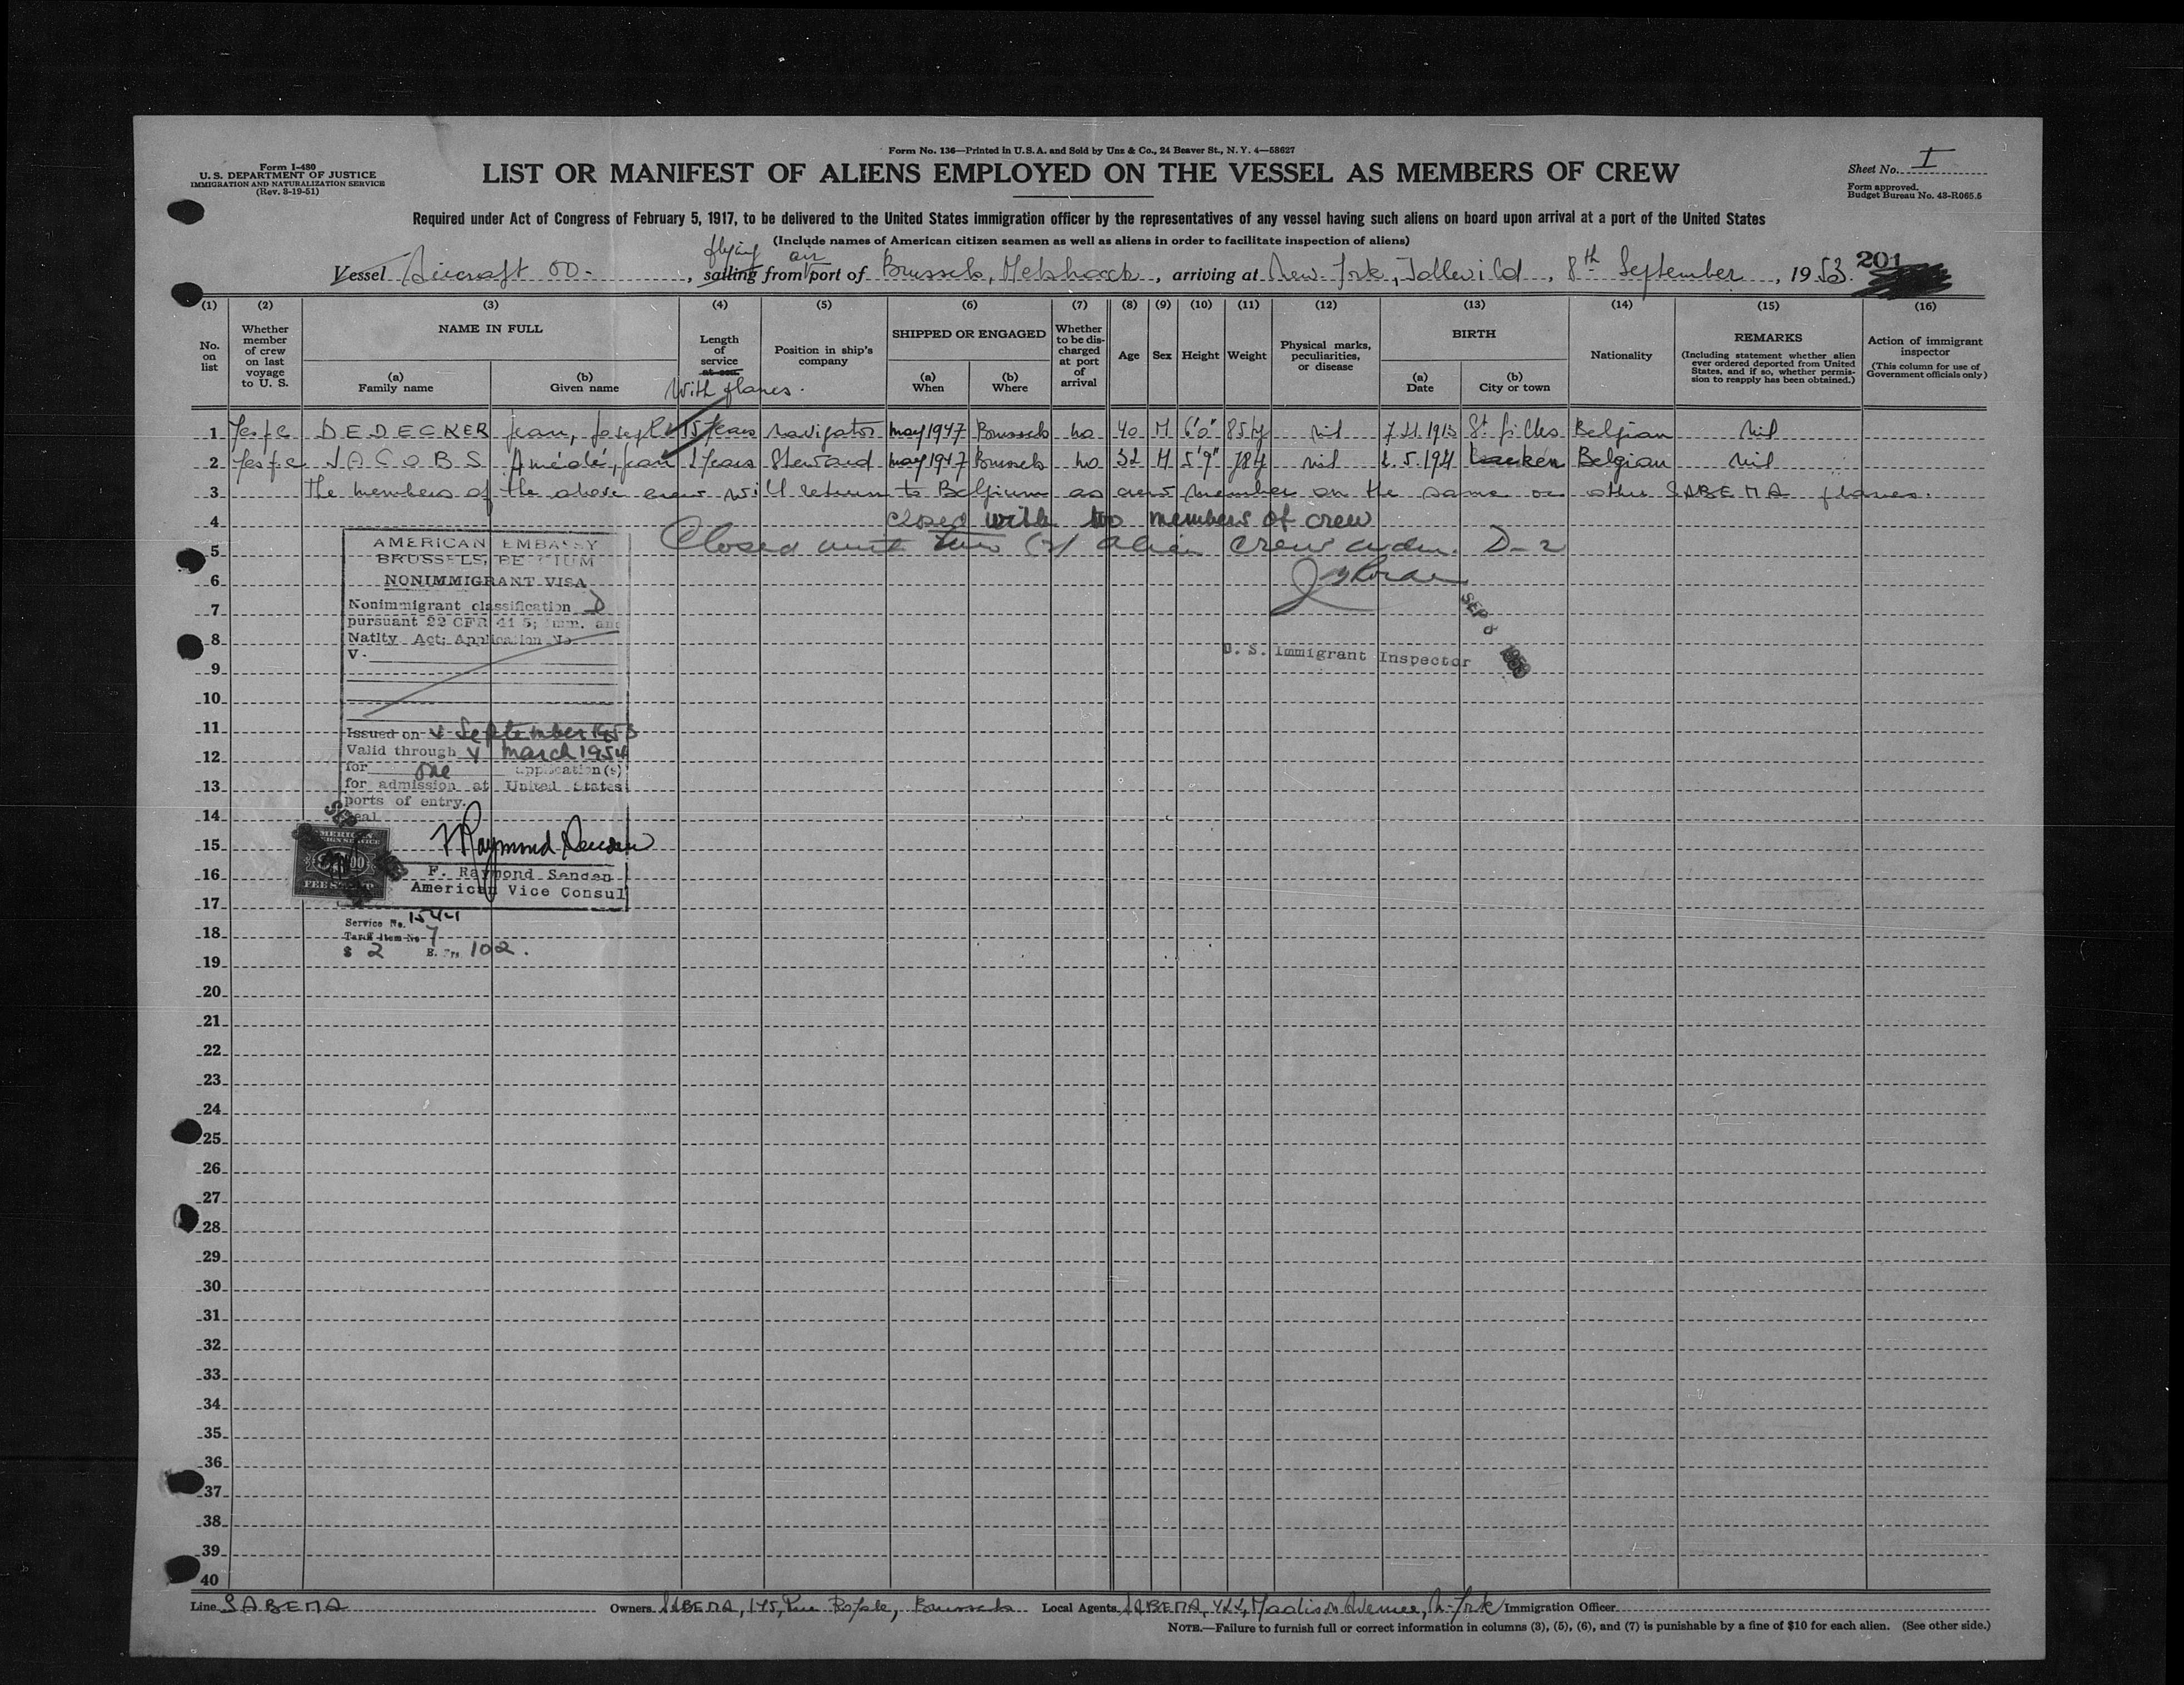 Form No. 136—Printed in U.S.A. and Sold by Unz & Co., 24 Beaver St., N. Y. 4—58627
Form I-480
U. S. DEPARTMENT OF JUSTICE
IMMIGRATION AND NATURALIZATION SERVICE
(Rev. 3-19-51)
LIST OR MANIFEST OF ALIENS EMPLOYED ON THE VESSEL AS MEMBERS OF CREW
Sheet No. I
Form approved.
Budget Bureau No. 43-R065.5
Required under Act of Congress of February 5, 1917, to be delivered to the United States immigration officer by the representatives of any vessel having such aliens on board upon arrival at a port of the United States
(Include names of American citizen seamen as well as aliens in order to facilitate inspection of aliens)
flying air
Vessel Aircraft OO-, sailing from port of Brussels, Melsbroeck, arriving at New-York, Idlewild, 8th September, 1953.
201
(1) (2) (3) (4) (5) (6) (7) (8) (9) (10) (11) (12) (13) (14) (15) (16)
No. on list
Whether member of crew on last voyage to U. S.
NAME IN FULL
(a) Family name
(b) Given name
Length of service at sea
With planes.
Position in ship's company
SHIPPED OR ENGAGED
(a) When
(b) Where
Whether to be discharged at port of arrival
Age
Sex
Height
Weight
Physical marks, peculiarities, or disease
BIRTH
(a) Date
(b) City or town
Nationality
REMARKS
(Including statement whether alien ever ordered deported from United States, and if so, whether permission to reapply has been obtained.)
Action of immigrant inspector
(This column for use of Government officials only)
1 DEDECKER Jean, Joseph 15 years navigator may 1947 Brussels no 40 M 6'0" nil St. Gilles Belgian Nil
2 JACOBS Amédé, Jean years Steward may 1947 Brussels no 32 M 5'9" nil Laeken Belgian Nil
3 The members of the above crew will return to Belgium as crew member on the same or other SABENA planes.
4 closed with two members of crew
5 Closed with two (2) alien crew adm. D-2
6
7
8
9
10
11
12
13
14
15
16
17
18
19
20
21
22
23
24
25
26
27
28
29
30
31
32
33
34
35
36
37
38
39
40
SEP 8 1953
U. S. Immigrant Inspector
AMERICAN EMBASSY
BRUSSELS, BELGIUM
NONIMMIGRANT VISA
Nonimmigrant classification D
pursuant 22 CFR 41 5; Imm. and
Natlty Act; Application No.
V-
Issued on 4 September 1953
Valid through 4 March 1954
for one application(s)
for admission at United States
ports of entry.
Seal
AMERICAN
FOREIGN SERVICE
FEE STAMP
F. Raymond Senden
American Vice Consul
Service No. 1544
Tariff Item No 7
$ 2 B. Frs. 102.
Line SABENA
Owners SABENA, 145, Rue Royale, Brussels
Local Agents SABENA, 422, Madison Avenue, N-York
Immigration Officer
NOTE.—Failure to furnish full or correct information in columns (3), (5), (6), and (7) is punishable by a fine of $10 for each alien. (See other side.)